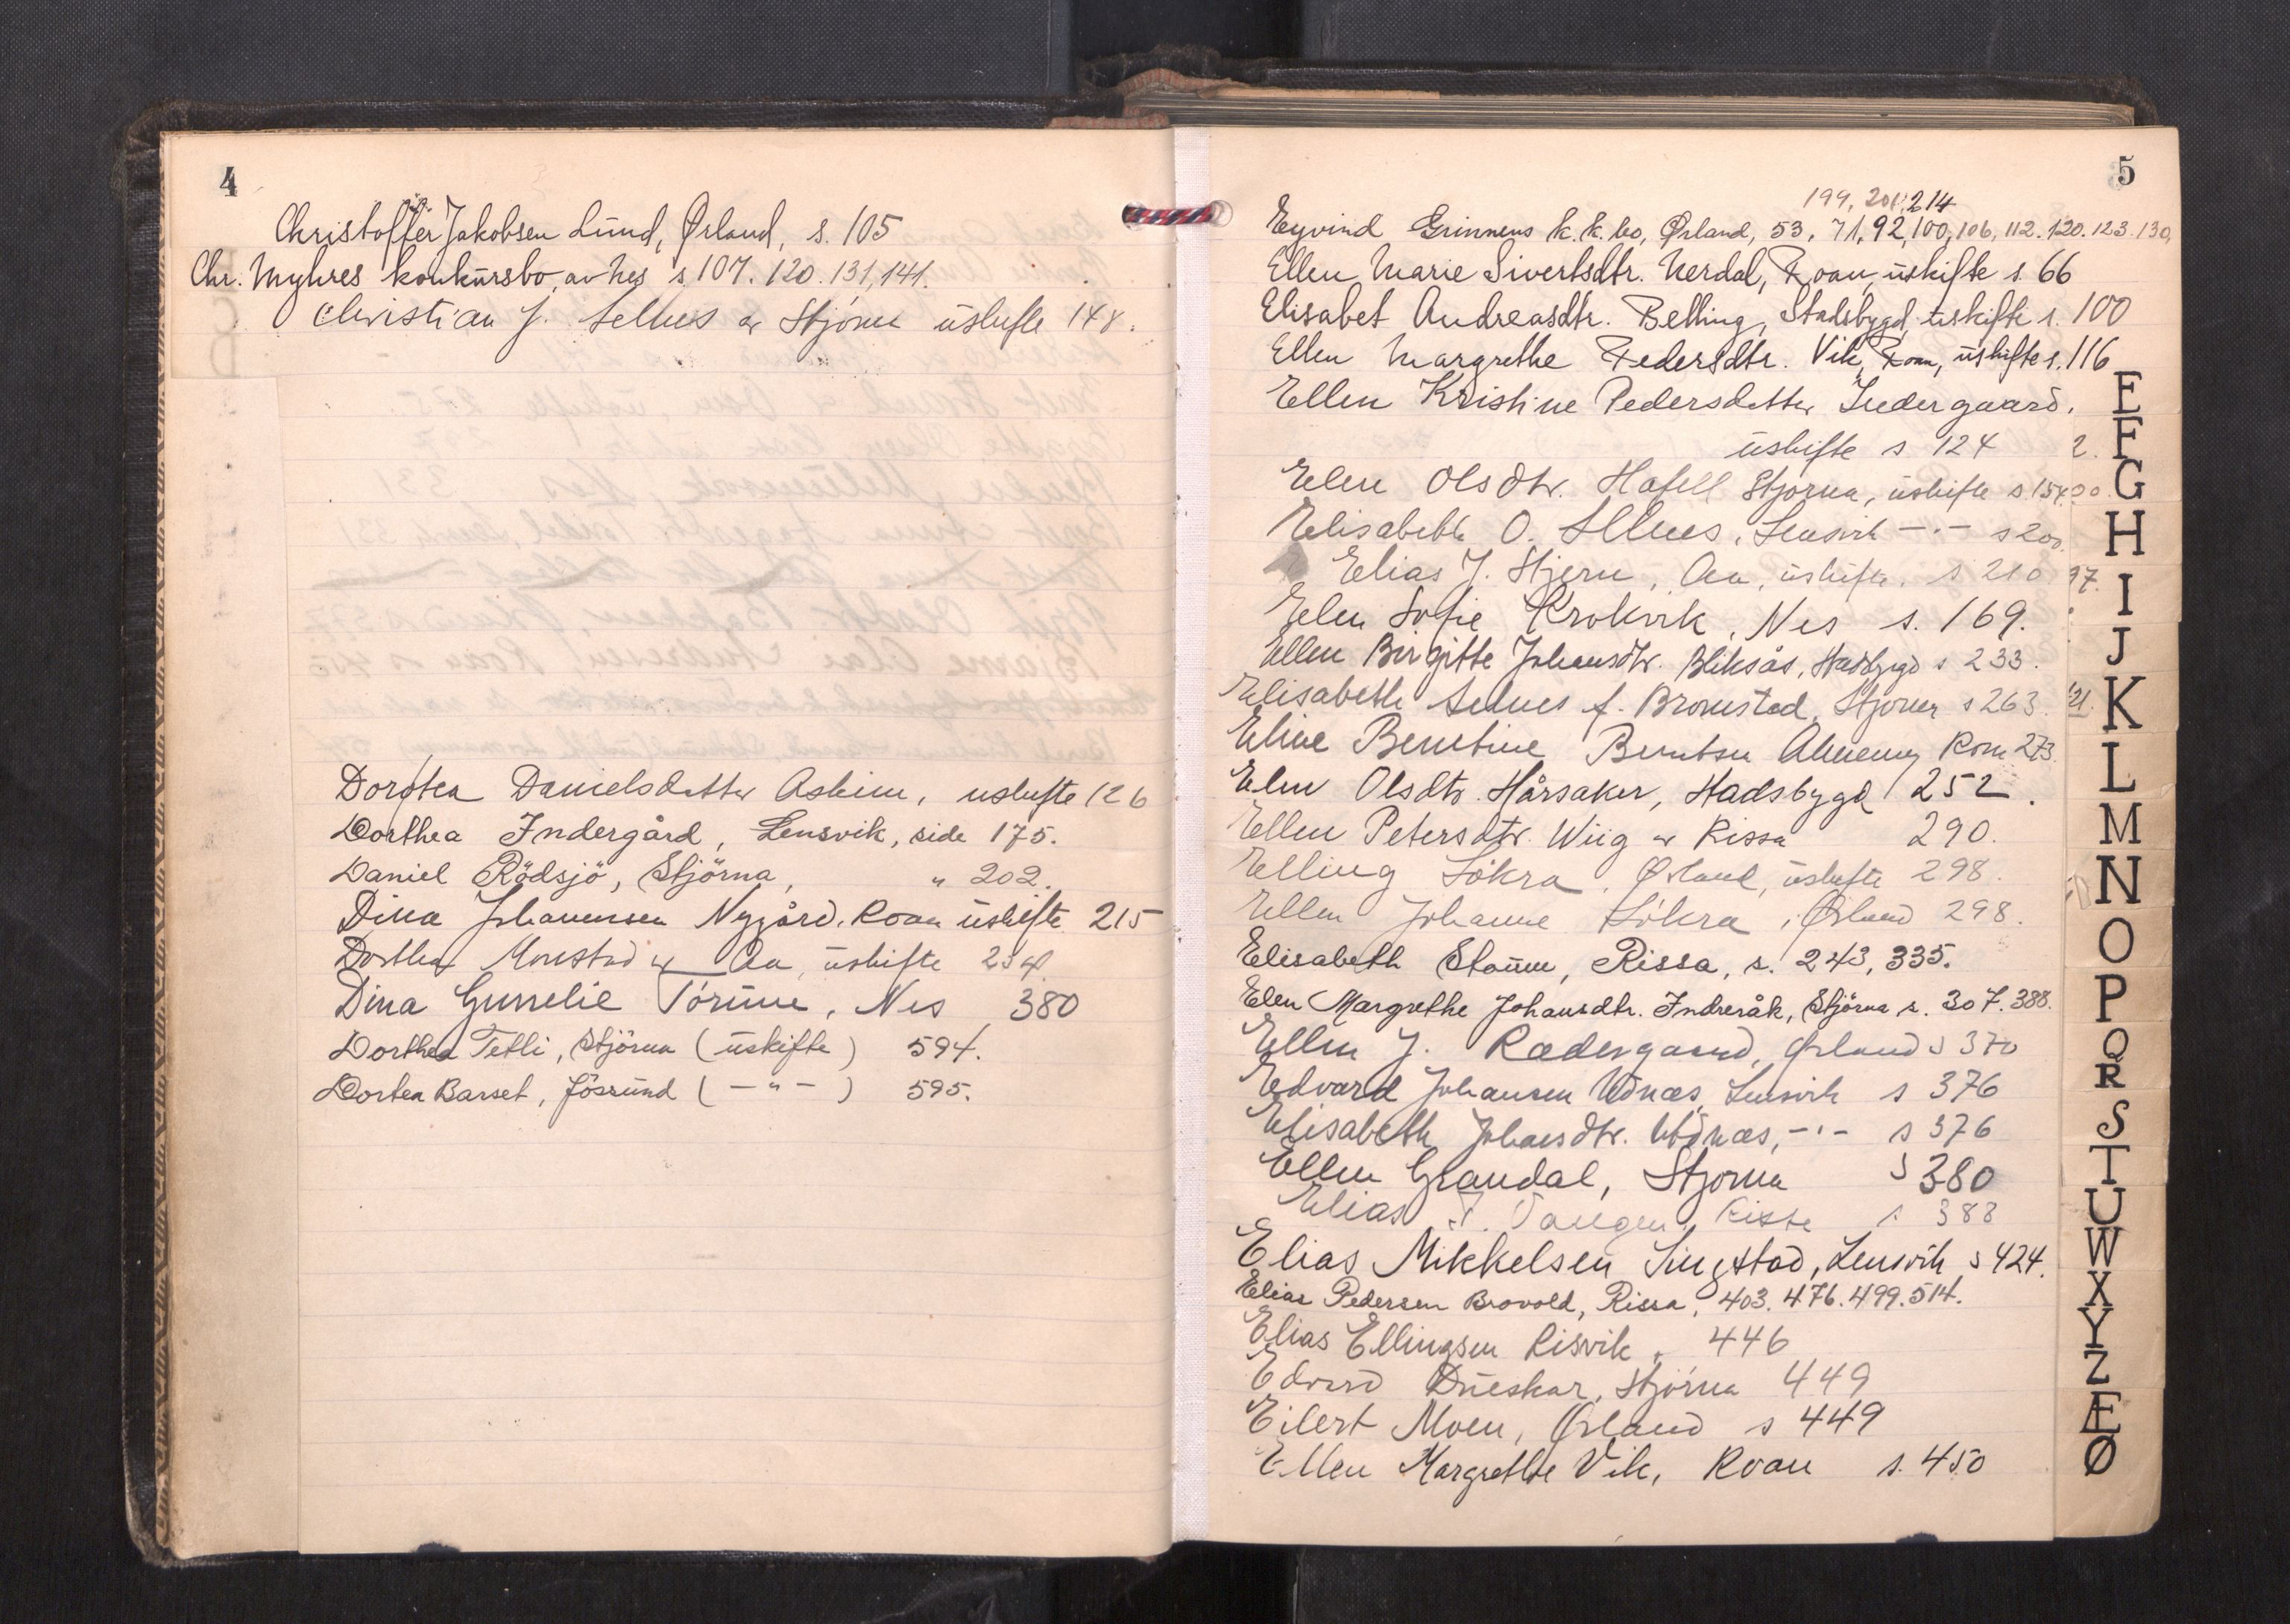 4
Christoffer Jakobsen Lund, Ørland, s. 105
Chr. Myhres konkursbo, av Nes s. 107. 120. 131, 141.
Christian J. Selnes av Stjörna uskifte 148.
Dorotea Danielsdatter Askim, uskifte 126
Dorthea Indergård, Lensvik, side 175.
Daniel Rödsjö, Stjörna, " 202.
Dina Johannesen Nygård, Roan uskifte 215
Dorthea Monstad av Aa, uskifte 234
Dina Gurrelie Törum, Nes 380
Dorthea Tetli, Stjörna (uskifte) 594.
Dortea Barset, Jössund ( — " — ) 595.
5
199, 201, 214
Eyvind Grinnens k.k. bo, Ørland, 53, 71, 92, 100, 106, 112. 120. 123. 130,
Ellen Marie Sivertsdtr. Nerdal, Roan, uskifte s. 66
Elisabet Andreasdtr. Belling, Stadsbygd, uskifte s. 100
Ellen Margrethe Pedersdtr. Vik, Roan, uskifte s. 116
Ellen Kristine Pedersdatter Indergaard,
uskifte s 124
Elen Olsdtr. Hafell Stjørna, uskifte s. 154
Elisabeth O. Selnes, Lensvik — " — s 200.
Elias J. Stjern, Aa, uskifte, s 210
Elen Sofie Krokvik, Nes s. 169.
Ellen Birgitte Johansdtr. Bliksås, Stadsbygd s 233.
Elisabeth Selnes f. Bromstad, Stjorna s 263.
Eline Berntine Berntsen Almeng Roan 273
Elen Olsdtr. Hårsaker, Stadsbygd 252.
Ellen Petersdtr. Wiig av Rissa 290.
Elling Lökra, Ørland, uskifte 298.
Ellen Johanne Lökra, Ørland 298.
Elisabeth Staum, Rissa, s. 243, 335.
Elen Margrethe Johansdtr. Indreråk, Stjörna s. 307. 388.
Ellen J. Rædergaard, Ørland s 370
Edvard Johansen Udnæs, Lensvik s 376
Elisabeth Johansdtr. Udnæs, — " — s 376
Ellen Grandal, Stjorna s 380
Elias P. Vangen, Rissa s 383
Elias Mikkelsen Singstad, Lensvik s 424.
Elias Pedersen Brovold, Rissa, 403. 476. 499. 514.
Elias Ellingsen Risvik, 446
Edvard Dueskar, Stjörna 449
Eilert Moen, Ørland s 449
Ellen Margrethe Vik, Roan s. 450
E
F
G
H
I
J
K
L
M
N
O
P
Q
R
S
T
U
W
X
Y
Z
Æ
Ø